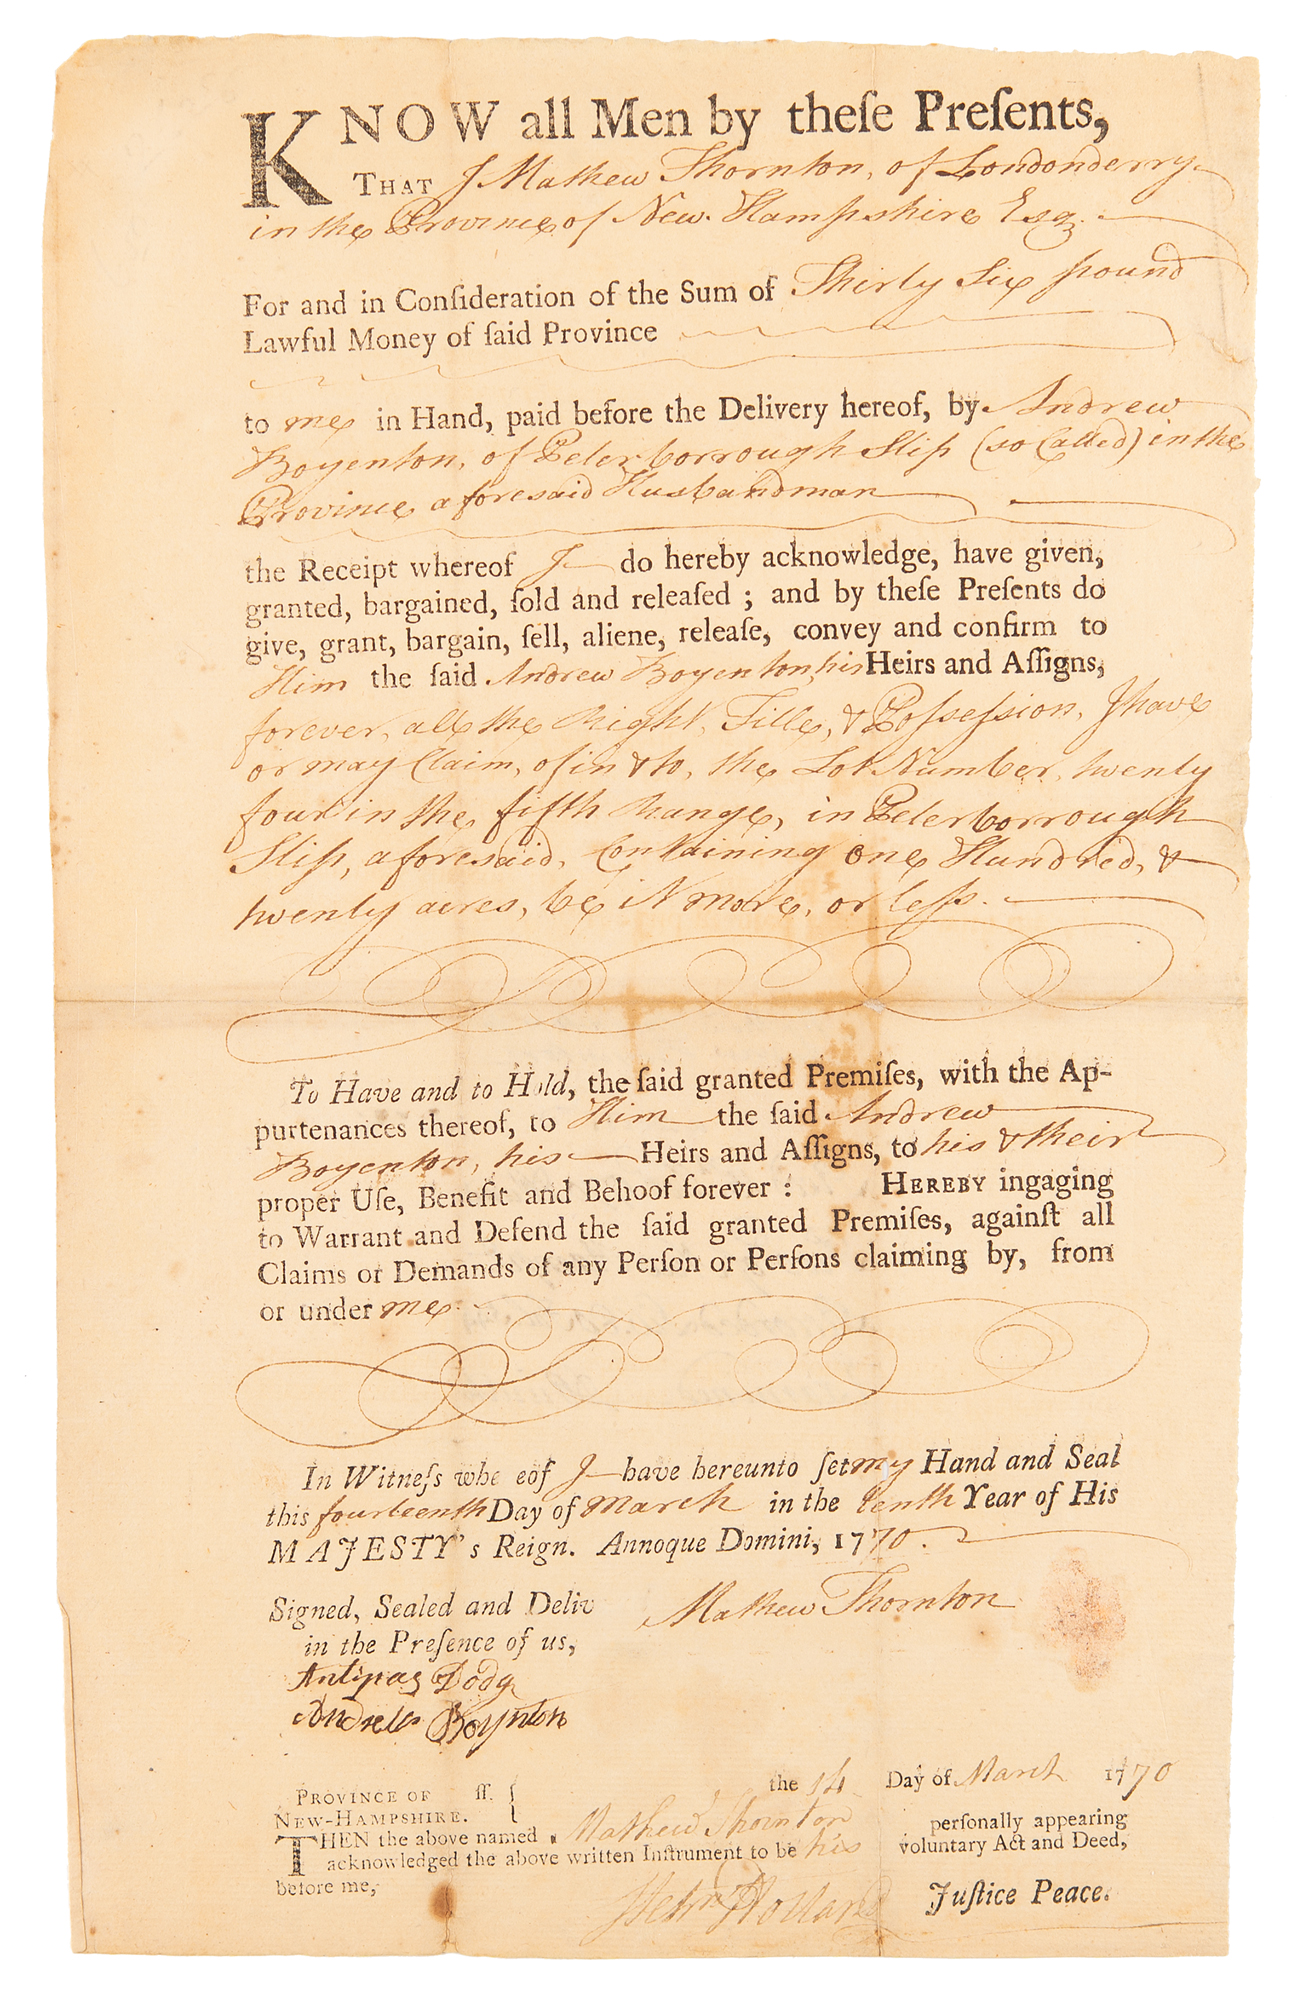 KNOW all Men by theſe Preſents,
THAT I Mathew Thornton, of Londonderry
in the Province of New-Hampshire Esqr.
For and in Conſideration of the Sum of Thirty Six pound
Lawful Money of ſaid Province
to me in Hand, paid before the Delivery hereof, by Andrew
Boyenton, of Peterborrough Slip (so Called) in the
Province aforesaid Husbandman
the Receipt whereof I do hereby acknowledge, have given,
granted, bargained, ſold and releaſed ; and by theſe Preſents do
give, grant, bargain, ſell, aliene, releaſe, convey and confirm to
Him the ſaid Andrew Boyenton, his Heirs and Aſſigns,
forever, all the Right, Title, & Poſseſsion, I have
or may Claim, of in & to, the Lot Number, twenty
four in the fifth Range, in Peterborrough
Slip, aforesaid, Containing one Hundred, &
twenty acres, be it more, or leſs.
To Have and to Hold, the ſaid granted Premiſes, with the Ap-
purtenances thereof, to Him the ſaid Andrew
Boyenton, his Heirs and Aſſigns, to his & their
proper Uſe, Benefit and Behoof forever : HEREBY ingaging
to Warrant and Defend the ſaid granted Premiſes, againſt all
Claims or Demands of any Perſon or Perſons claiming by, from
or under me.
In Witneſs whe eof I have hereunto ſet my Hand and Seal
this fourteenth Day of March in the tenth Year of His
MAJESTY's Reign. Annoque Domini, 1770.
Signed, Sealed and Deliv Mathew Thornton
in the Preſence of us,
Antipas Dodg
Andrew Boynton
PROVINCE OF ſſ. { the 14 Day of March 1770
NEW-HAMPSHIRE.
THEN the above named Mathew Thornton perſonally appearing
acknowledged the above written Inſtrument to be his voluntary Act and Deed,
before me,
Stehn Holland Juſtice Peace.